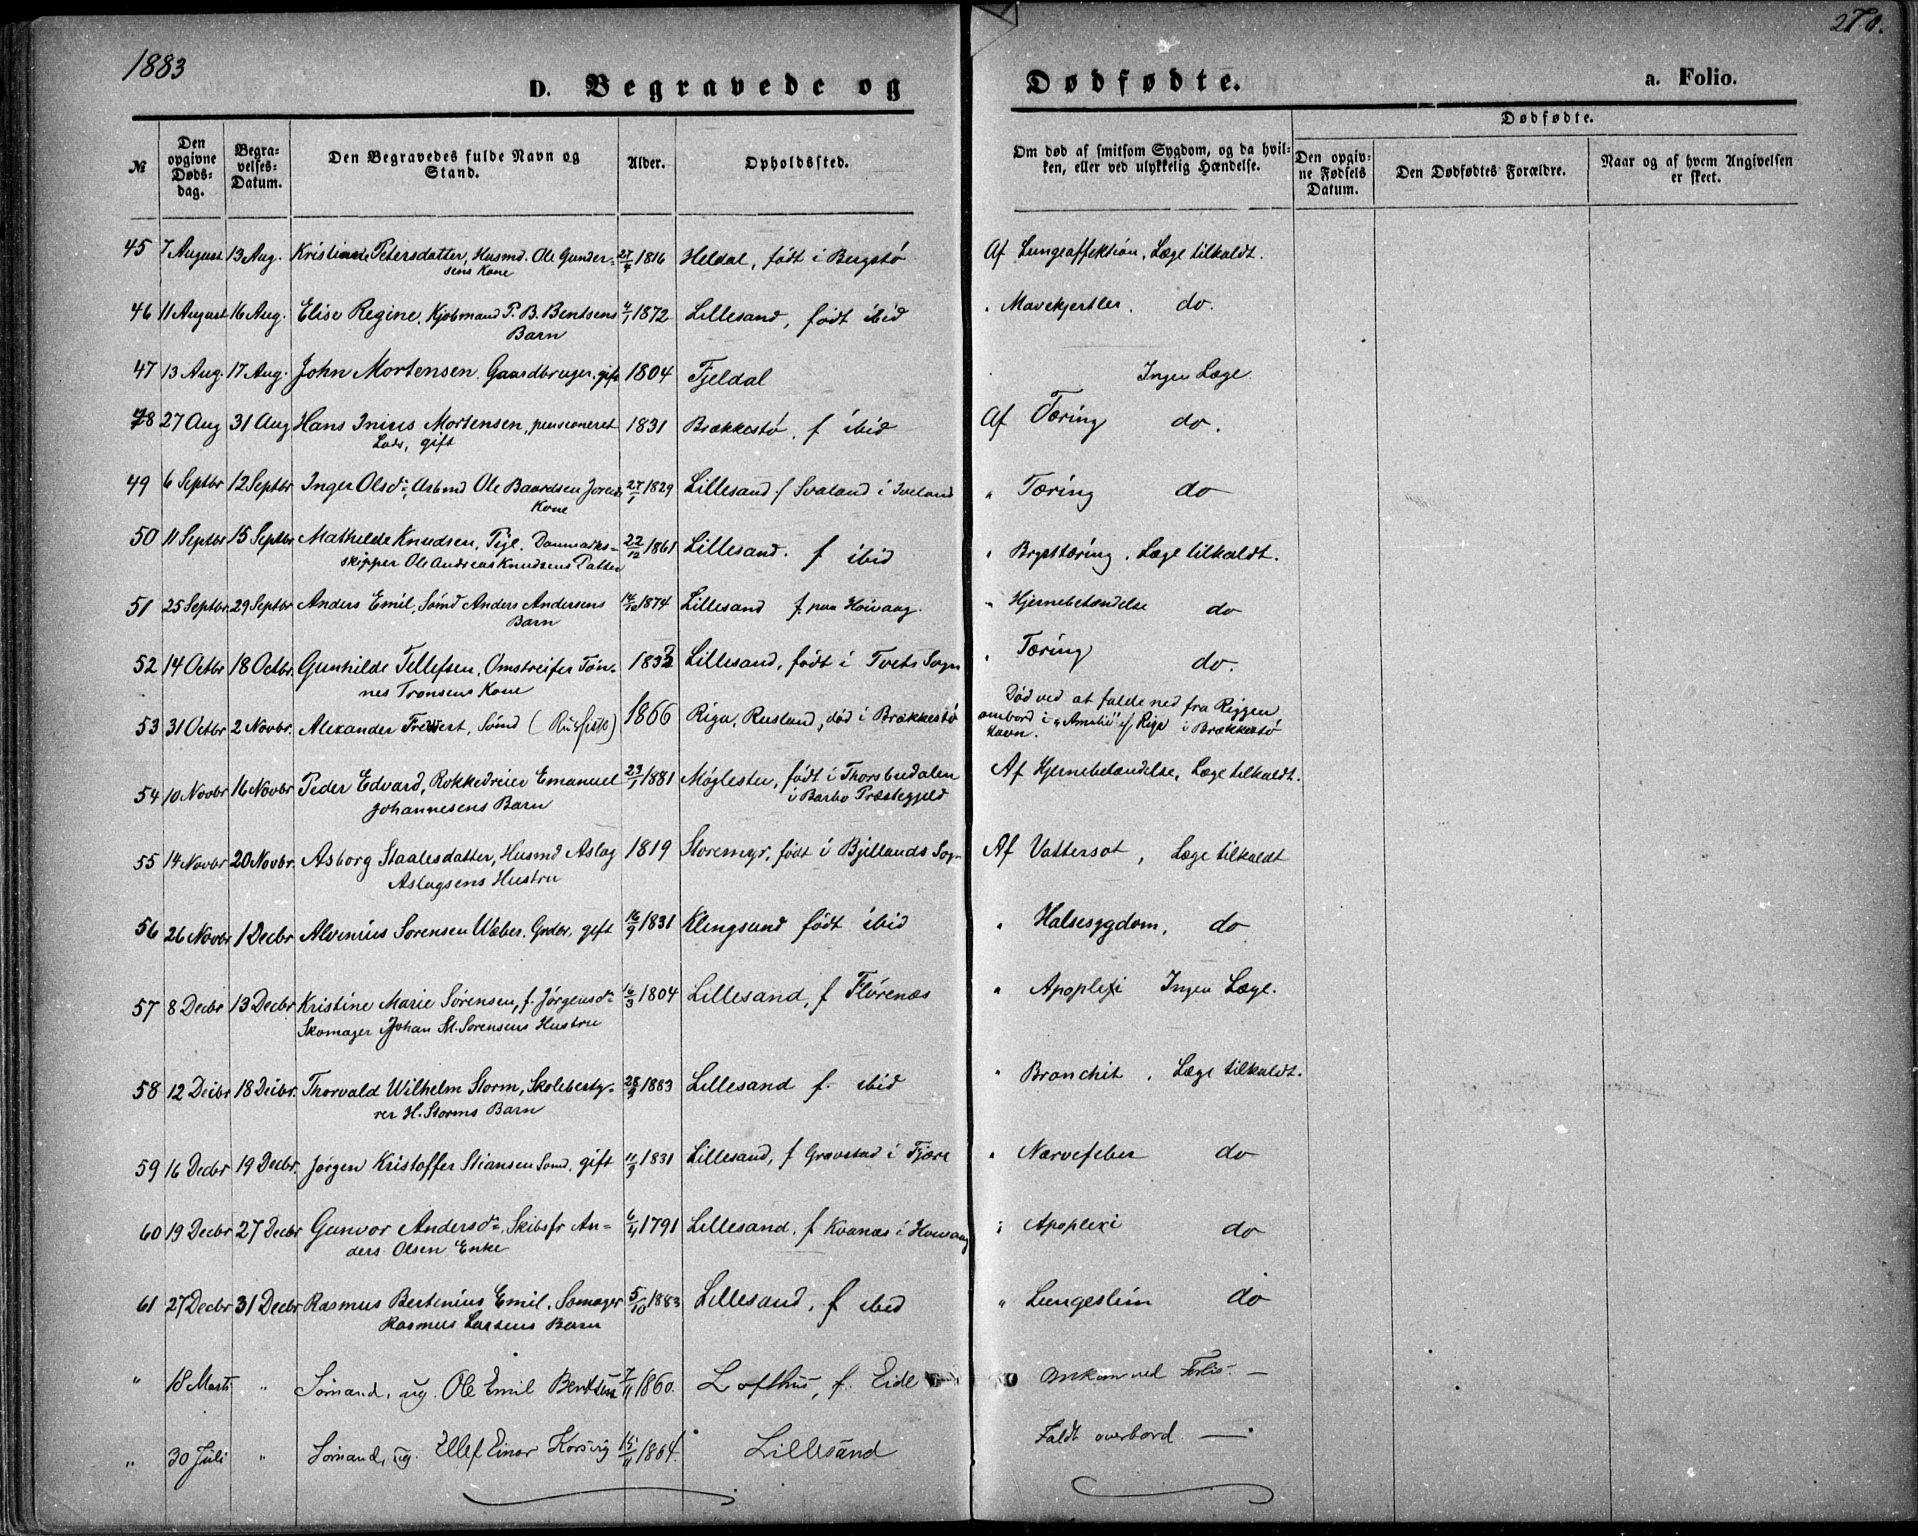 1883
270.
D. Begravede og Dødfødte.
a. Folio.
№
Den opgivne Døds-dag.
Begra-velses-Datum.
Den Begravedes fulde Navn og Stand.
Alder.
Opholdssted.
Om død af smitsom Sygdom, og da hvil-ken, eller ved ulykkelig Hændelse.
Dødfødte.
Den opgiv-ne Fødsels Datum.
Den Dødfødtes Forældre.
Naar og af hvem Angivelsen er skeet.
45 7 August 13 Aug. Kristiane Petersdatter, Husmd. Ole Gunder- 27/4 1816 Heldal, født i Bergstø Af Lungeaffektion, Læge tilkaldt.
sens Kone
46 11 August 16 Aug. Elise Regine, Kjøbmand P. B. Bentsens 4/1 1872 Lillesand, født ibid " Mavekjertler. do.
Barn
47 13 Aug. 17 Aug. John Mortensen, Gaardbruger, gift 1804 Fjeldal Ingen Læge.
48 27 Aug 31 Aug Hans Inius Mortensen, pensioneret 1831 Brækkestø, f ibid Af Tæring do.
Lods, gift
49 6 Septbr 12 Septbr Inger Olsd:, Arbmd Ole Baardsen 27/1 1829 Lillesand f Svaland i Iveland " Tæring do
Kone
50 11 Septbr 15 Septbr Mathilde Knudsen, Pige. Danmarks- 22/12 1861 Lillesand. f ibid " Brysttæring. Læge tilkaldt.
skipper Ole Andreas Knudsens Datter
51 25 Septbr 29 Septbr Anders Emil, Sømd Anders Andersens 14/10 1874 Lillesand f. paa Høivaag. " Hjernebetændelse do
Barn
52 14 Octbr 18 Octbr. Gunhilde Tellefsen, Omstreifer Tøn- 1833 Lillesand, født i Tvets Sogn " Tæring do.
nes Tronsens Kone
53 31 Octbr 2 Novbr. Alexander Frewert, Sømd 1866 Riga, Rusland, død i Brækkestø Død ved at falde ned fra Riggen
ombord i "Amalie" af Riga i Brækkestø
Havn.
54 10 Novbr 16 Novbr Peder Edvard, Rokkedreier Emanuel 23/1 1881 Møglestu, født i Thorsbudalen Af Hjernebetændelse, Læge tilkaldt.
Johannesens Barn i Barbo Præstegjeld
55 14 Novbr 20 Novbr. Asborg Staalesdatter, Husmd Aslag 1819 Storemyr, født i Bjellands Sogn Af Vattersot, Læge tilkaldt
Aslagsens Hustru
56 26 Novbr 1 Decbr Alvinius Sørensen Wæber, Grdbr, gift 16/9 1831 Klingsund født ibid " Halsesygdom, do
57 8 Decbr 13 Decbr Kristine Marie Sørensen, f. Jørgensd: 16/3 1804 Lillesand, f Florenæs " Apoplexi Ingen Læge.
Skomager Johan M. Sørensens Hustru
58 12 Decbr 18 Decbr. Thorvald Wilhelm Storm, Skolebesty- 28/3 1883 Lillesand f. ibid " Bronchit. Læge tilkaldt.
rer H. Storms Barn
59 16 Decbr 19 Decbr. Jørgen Kristoffer Stiansen Sømd, gift 11/9 1831 Lillesand, f Gravstad i Fjære " Nærvefeber do
60 19 Decbr 27 Decbr Gunvor Andersd:, Skibsfr An- 6/4 1791 Lillesand. f Kvanæs i Høivaag " Apoplexi do
ders Olsen Enke
61 27 Decbr 31 Decbr Rasmus Bertinius Emil, Somager 5/10 1883 Lillesand, f ibid " Lungeslim do
Rasmus Larsens Barn
" 18 Marts " Sømand, ug. Ole Emil Bentsen 7/11 1860. Lofthus, f. Eide Omkom ved Forlis. —
" 30 Juli " Sømand, ug. Ellef Einar Korsvig 15/11 1864. Lillesand Faldt overbord. —